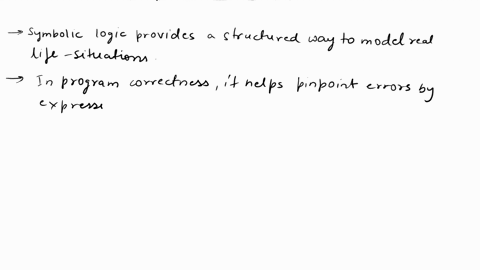 → Symbolic logic provides a structured way to model real
life-situations.
→ In program correctness, it helps pinpoint errors by
expresse